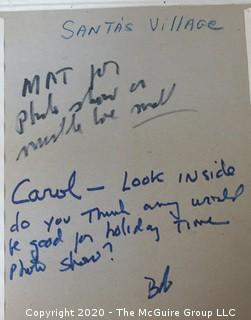 SANTA'S VILLAGE
MAT for
photo show or
must be low
Carol — Look INSIDE
do you Think any would
be good for holiday Time
Photo Show?
Bob
Copyright 2020 - The McGuire Group LLC